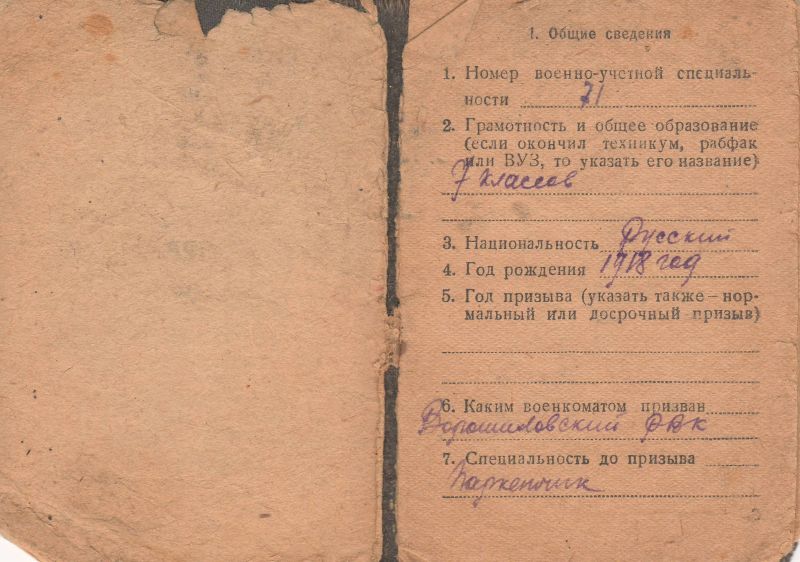 1. Общие сведения
1. Номер военно-учетной специаль-
ности 71
2. Грамотность и общее образование
(если окончил техникум, рабфак
или ВУЗ, то указать его название)
7 классов
3. Национальность Русский
4. Год рождения 1918 год
5. Год призыва (указать также – нор-
мальный или досрочный призыв)
6. Каким военкоматом призван
Ворошиловский РВК
7. Специальность до призыва